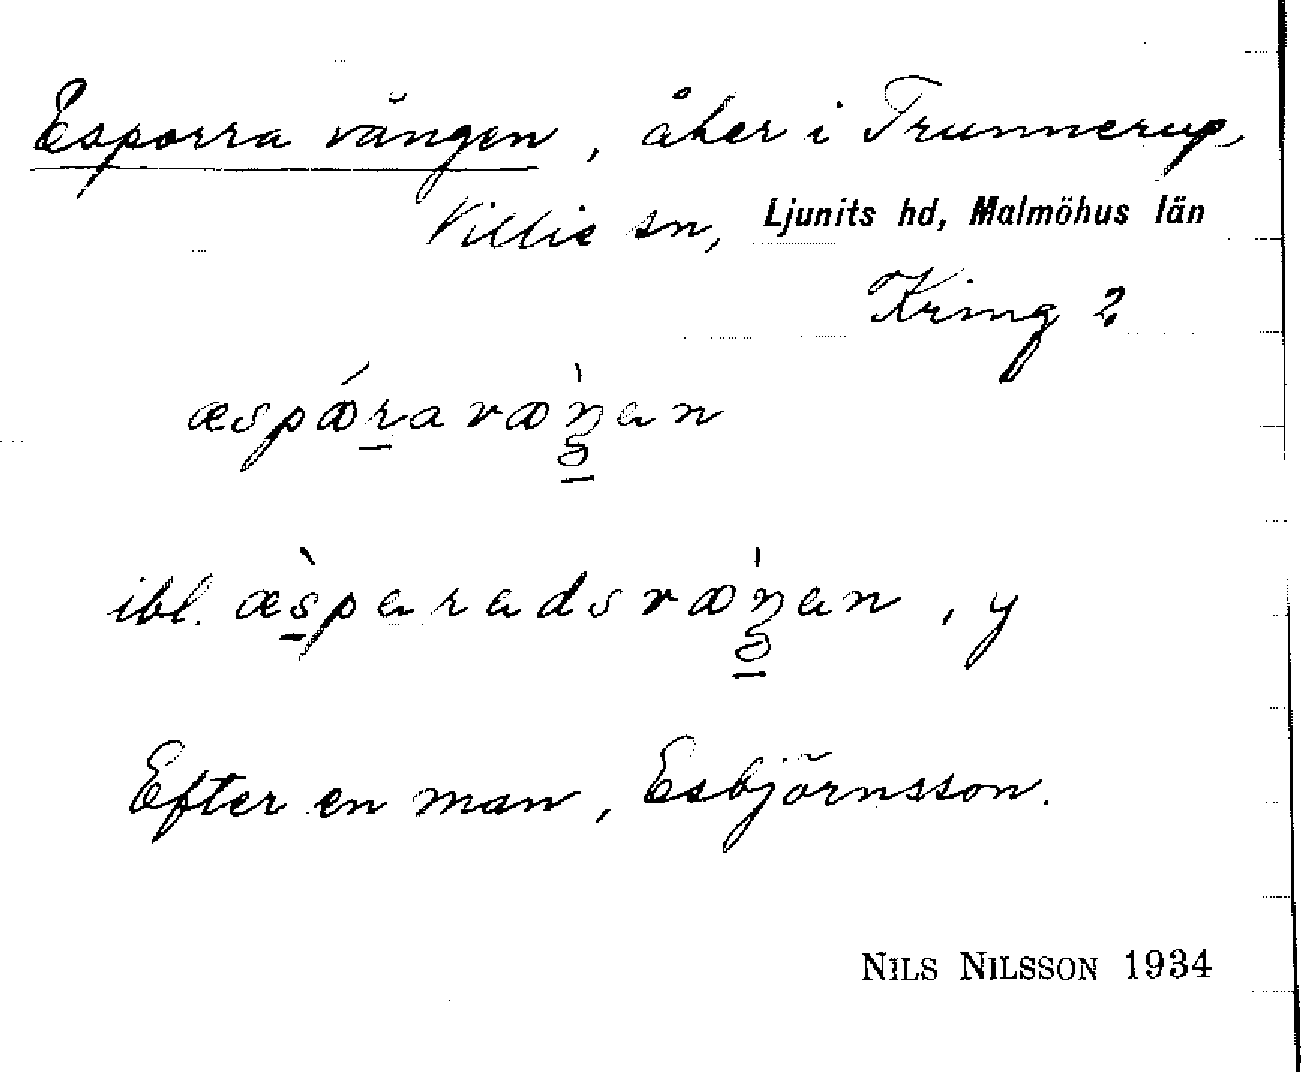 Esporra vången, åker i Trunnerup,
Villie sn, Ljunits hd, Malmöhus län
Kring ?
æspǿra vøŋan
ibl. æsparadsvøŋan, y
Efter en man, Esbjörnsson.
NILS NILSSON 1934